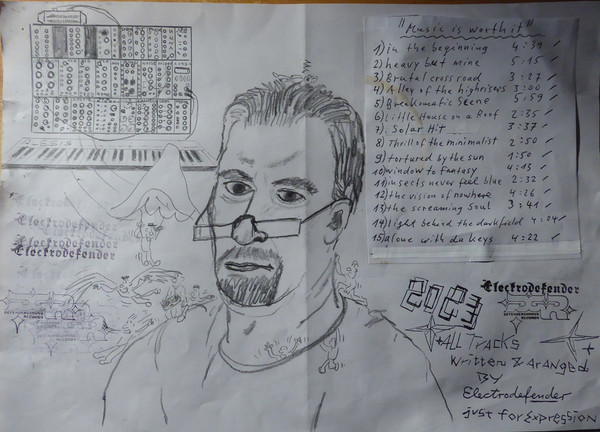 "Music is worth it"
1) in the beginning 4:39 ✓
2) heavy but mine 5:15 ✓
3) Brutal crossroad 3:27 ✓
4) Alley of the highrisers 3:00 ✓
5) Breakmatic Scene 5:59 ✓
6) Little House on a Roof 2:35 ✓
7) Solar Hit 3:37 ✓
8) Thrill of the minimalist 2:50 ✓
9) tortured by the sun 1:50 ✓
10) window to fantasy 4:13 ✓
11) insects never feel blue 2:32 ✓
12) the vision of nowhere 4:26 ✓
13) the screaming Soul 3:41 ✓
14) light behind the darkfield 4:24 ✓
15) alone with da keys 4:22 ✓
ALESIS
Electrodefender
Electrodefender
Electrodefender
Electrodefender
2023
Electrodefender
ALL TRACKS
Written & Aranged
BY
Electrodefender
just for Expression